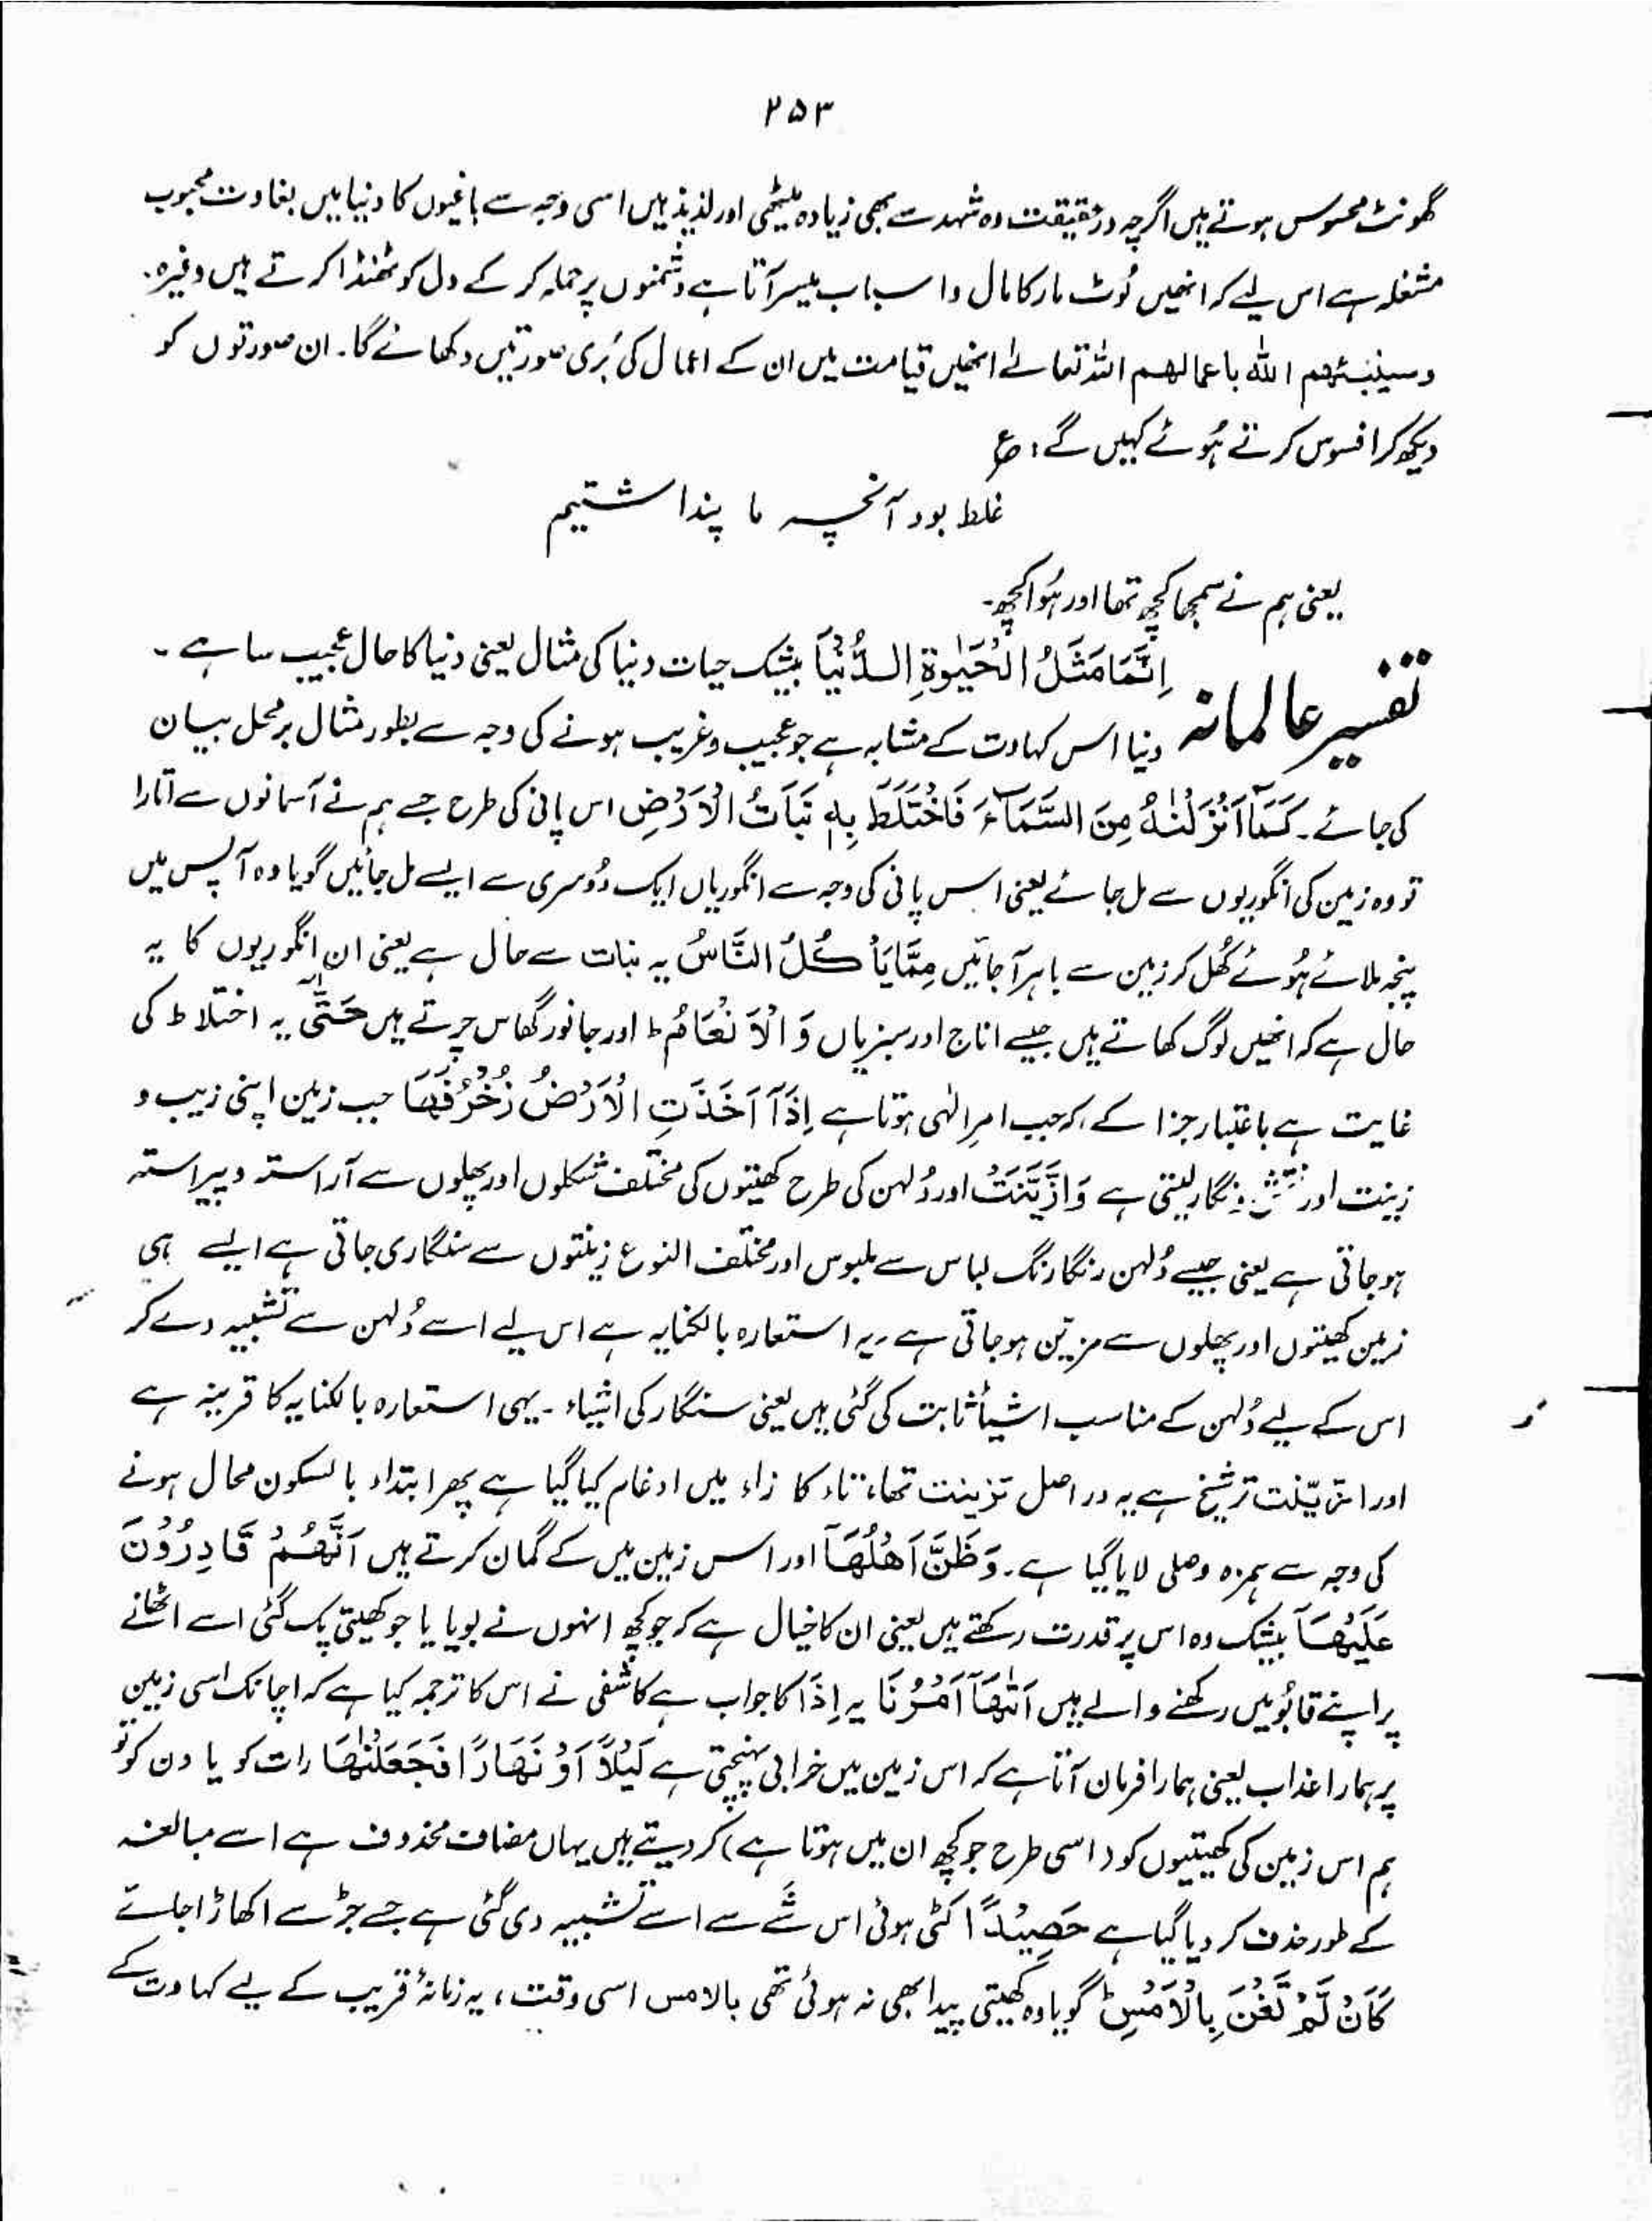 ۲۵۳
گھونٹ محسوس ہوتے ہیں اگرچہ درحقیقت وہ شہد سے بھی زیادہ میٹھی اور لذیذ ہیں اسی وجہ سے باغیوں کا دنیا میں بغاوت محبوب
مشغلہ ہے اس لیے کہ انھیں لُوٹ مار کا مال و اسباب میسر آتا ہے دشمنوں پر حملہ کر کے دل کو ٹھنڈا کرتے ہیں وغیرہ۔
وسینبئھم اللہ باعمالھم اللہ تعالےٰ انھیں قیامت میں ان کے اعمال کی بُری صورتیں دکھائے گا۔ ان صورتوں کو
دیکھ کر افسوس کرتے ہُوئے کہیں گے: ع
غلط بود آنچہ ما پنداشتیم
یعنی ہم نے سمجھا کچھ تھا اور ہُوا کچھ۔
تفسیر عالمانہ اِنَّمَا مَثَلُ الْحَیٰوۃِ الدُّنْیَا بیشک حیات دنیا کی مثال یعنی دنیا کا حال عجیب سا ہے۔
دنیا اس کہاوت کے مشابہ ہے جو عجیب و غریب ہونے کی وجہ سے بطور مثال برمحل بیان
کی جائے۔ کَمَآ اَنْزَلْنٰہُ مِنَ السَّمَآءِ فَاخْتَلَطَ بِہٖ نَبَاتُ الْاَرْضِ اس پانی کی طرح جسے ہم نے آسمانوں سے اتارا
تو وہ زمین کی انگوریوں سے مل جائے یعنی اس پانی کی وجہ سے انگوریاں ایک دُوسری سے ایسے مل جائیں گویا وہ آپس میں
پنجہ ملائے ہُوئے کُھل کر زمین سے باہر آجائیں مِمَّا یَاْکُلُ النَّاسُ یہ نبات سے حال ہے یعنی ان انگوریوں کا یہ
حال ہے کہ انھیں لوگ کھاتے ہیں جیسے اناج اور سبزیاں وَ الْاَنْعَامُ ط اور جانور گھاس چرتے ہیں حَتّٰی یہ اختلاط کی
غایت ہے باعتبار جزا کے، کہ جب امرِ الٰہی ہوتا ہے اِذَآ اَخَذَتِ الْاَرْضُ زُخْرُفَھَا جب زمین اپنی زیب و
زینت اور نقش و نگار لیتی ہے وَازَّیَّنَتْ اور دُلہن کی طرح کھیتوں کی مختلف شکلوں اور پھلوں سے آراستہ و پیراستہ
ہو جاتی ہے یعنی جیسے دُلہن رنگارنگ لباس سے ملبوس اور مختلف النوع زینتوں سے سنگاری جاتی ہے ایسے ہی
زمین کھیتوں اور پھلوں سے مزیّن ہو جاتی ہے۔ یہ استعارہ بالکنایہ ہے اس لیے اسے دُلہن سے تشبیہ دے کر
اس کے لیے دُلہن کے مناسب اشیأ ثابت کی گئی ہیں یعنی سنگار کی اشیاء۔ یہی استعارہ بالکنایہ کا قرینہ ہے
اور ازّیّنت ترشیخ ہے یہ در اصل تزینت تھا، تاء کا زاء میں ادغام کیا گیا ہے پھر ابتداء بالسکون محال ہونے
کی وجہ سے ہمزہ وصلی لایا گیا ہے۔ وَظَنَّ اَھْلُھَآ اور اس زمین میں کے گمان کرتے ہیں اَنَّھُمْ قَادِرُوْنَ
عَلَیْھَآ بیشک وہ اس پر قدرت رکھتے ہیں یعنی ان کا خیال ہے کہ جو کچھ انہوں نے بویا یا جو کھیتی پک گئی اسے اٹھانے
پر اپنے قابُو میں رکھنے والے ہیں اَتٰھَآ اَمْرُنَا یہ اِذَا کا جواب ہے کاشفی نے اس کا ترجمہ کیا ہے کہ اچانک اسی زمین
پر ہمارا عذاب یعنی ہمارا فرمان آتا ہے کہ اس زمین میں خرابی پہنچتی ہے لَیْلًا اَوْ نَھَارًا فَجَعَلْنٰھَا رات کو یا دن کو تو
ہم اس زمین کی کھیتیوں کو (اسی طرح جو کچھ ان میں ہوتا ہے) کر دیتے ہیں یہاں مضاف محذوف ہے اسے مبالغہ
کے طور حذف کر دیا گیا ہے حَصِیْدًا کٹی ہوئی اس شَے سے اسے تشبیہ دی گئی ہے جسے جڑ سے اکھاڑا جائے
کَاَنْ لَّمْ تَغْنَ بِالْاَمْسِ ط گویا وہ کھیتی پیدا بھی نہ ہوئی تھی بالامس اسی وقت، یہ زمانۂ قریب کے لیے کہاوت کے